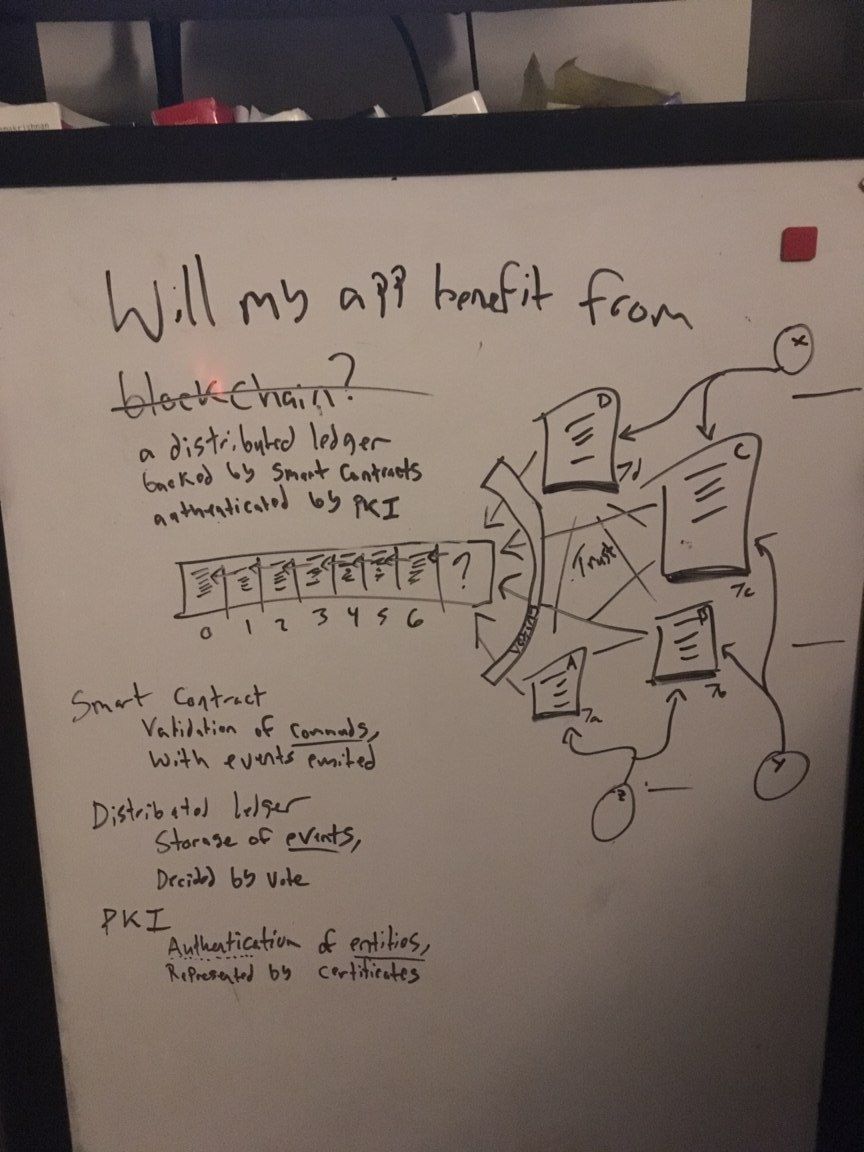 Will my app benefit from
blockchain?
a distributed ledger
backed by Smart Contracts
authenticated by PKI
X
D
7d
C
7c
Trust
?
0 1 2 3 4 5 6
B
7b
A
7a
Y
Z
Smart Contract
Validation of commads,
With events emited
Distributed ledger
Storage of events,
Decided by vote
PKI
Authentication of entities,
Represented by certificates